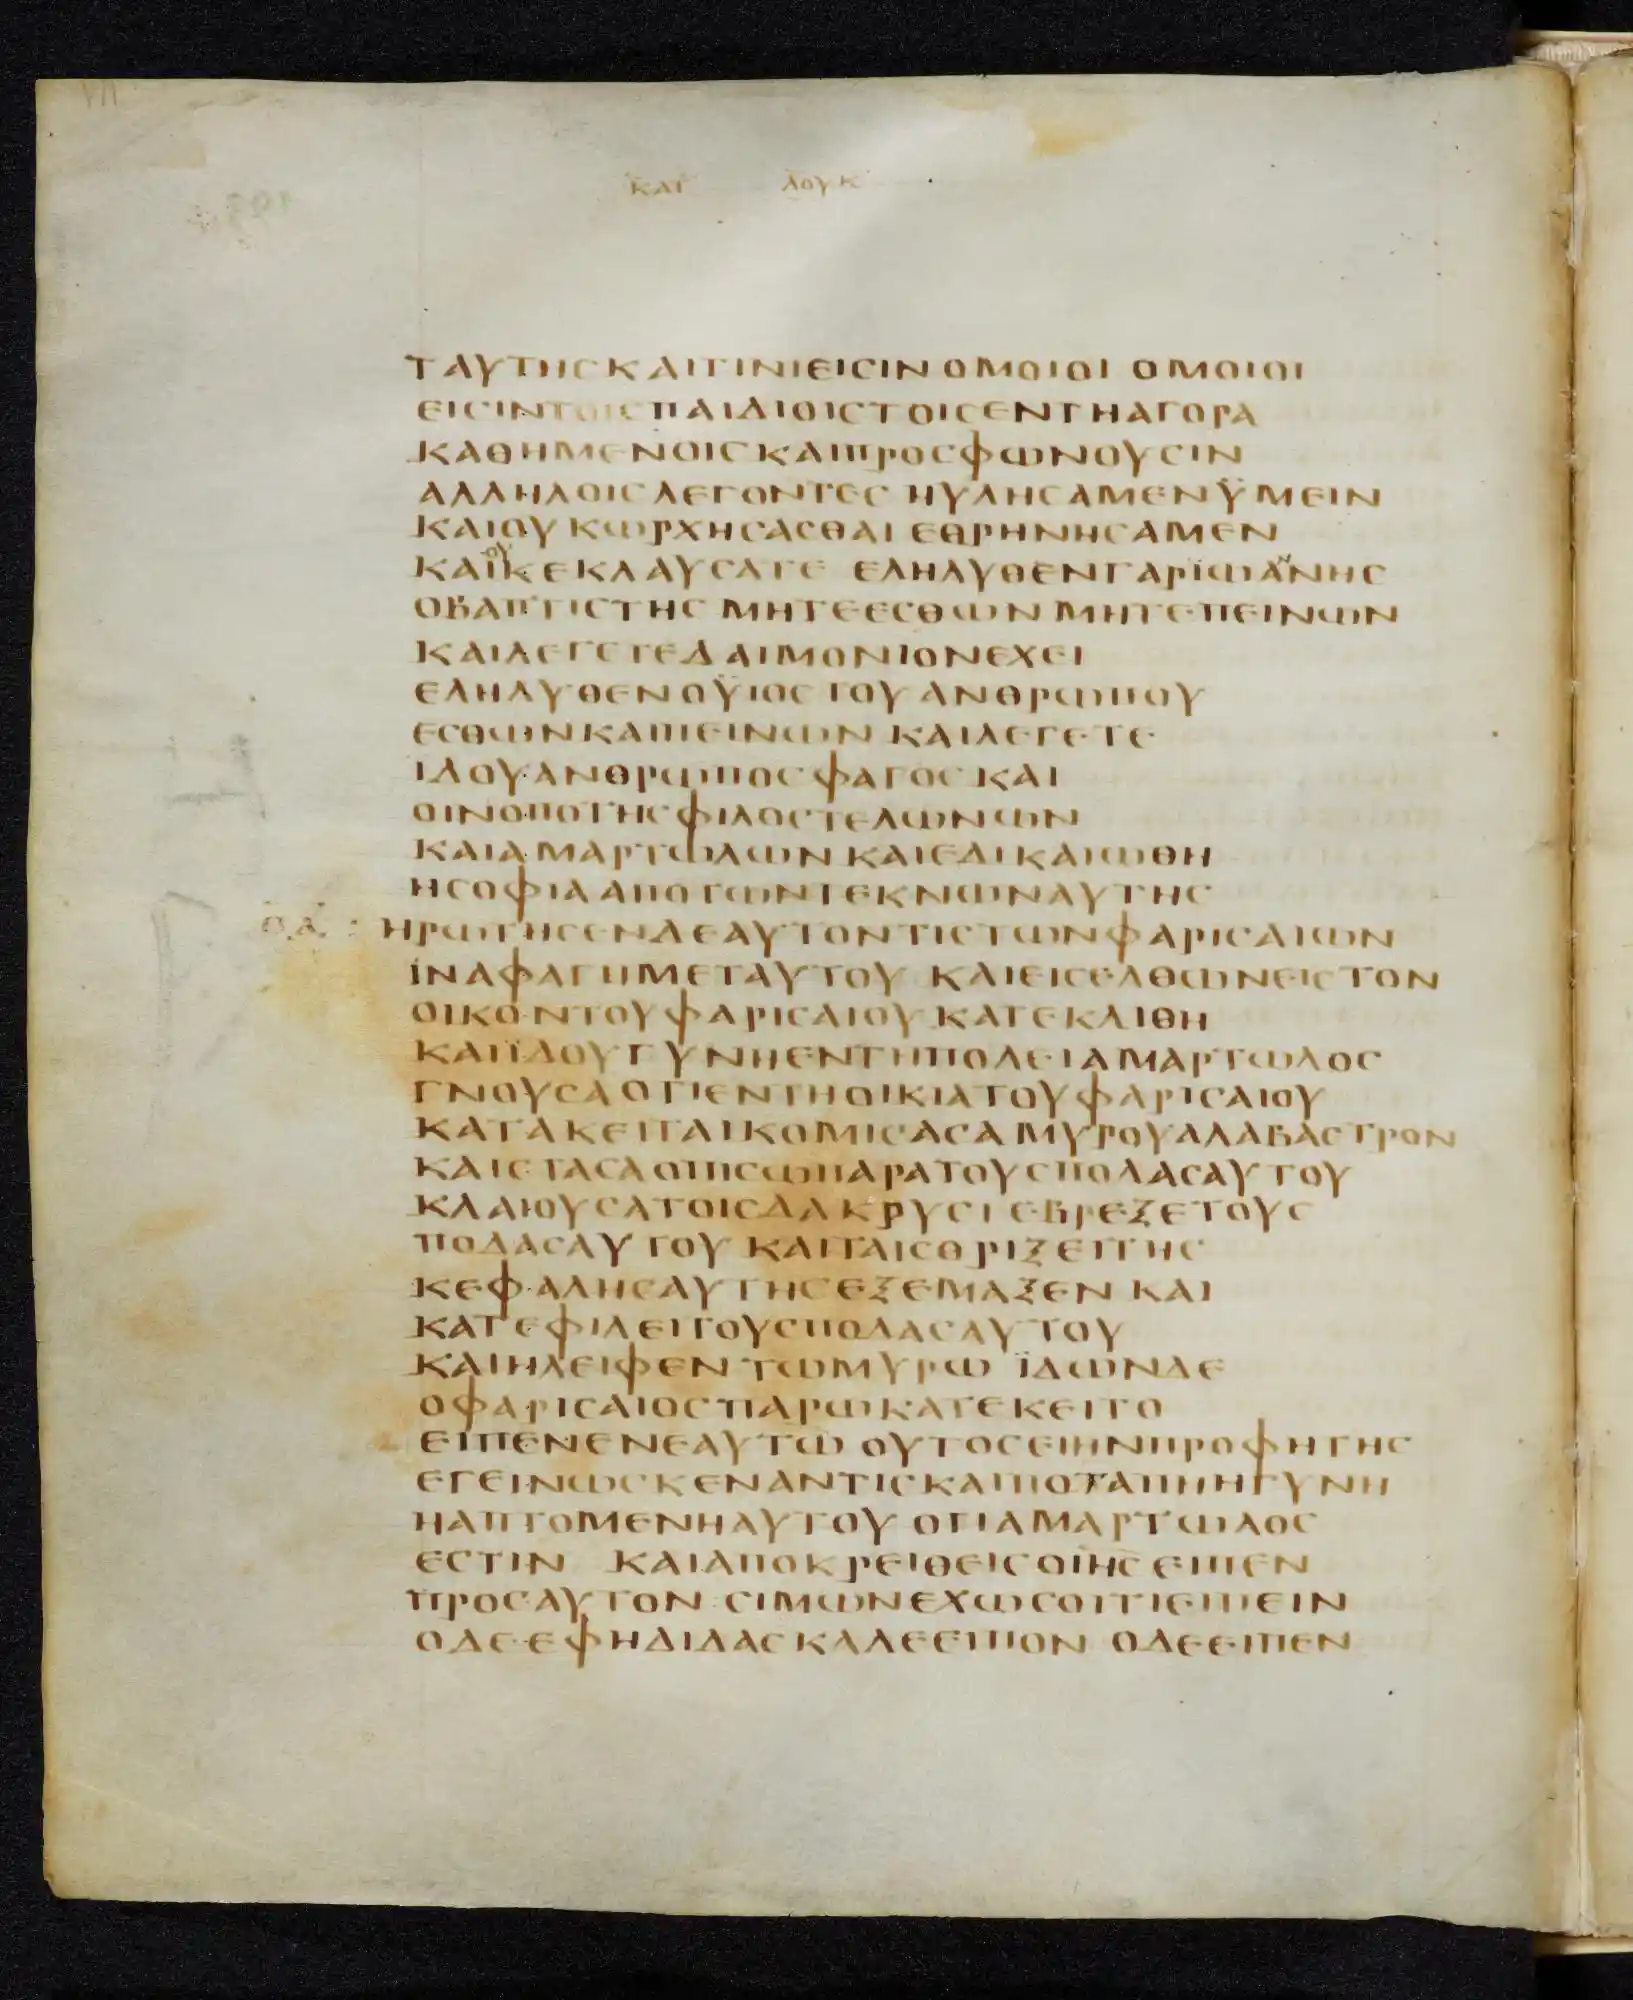 ΚΑΤ ΛΟΥΚ
ΤΑΥΤΗϹΚΑΙΤΙΝΙΕΙϹΙΝ ΟΜΟΙΟΙ ΟΜΟΙΟΙ
ΕΙϹΙΝΤΟΙϹΠΑΙΔΙΟΙϹΤΟΙϹΕΝΤΗΑΓΟΡΑ
ΚΑΘΗΜΕΝΟΙϹΚΑΙΠΡΟϹΦΩΝΟΥϹΙΝ
ΑΛΛΗΛΟΙϹ ΛΕΓΟΝΤΕϹ ΗΥΛΗϹΑΜΕΝΫΜΕΙΝ
ΚΑΙΟΥΚΩΡΧΗϹΑϹΘΑΙ ΕΘΡΗΝΗϹΑΜΕΝ
ΚΑΙΟΥΚΕΚΛΑΥϹΑΤΕ ΕΛΗΛΥΘΕΝΓΑΡΪΩΑΝΝΗϹ
ΟΒΑΠΤΙϹΤΗϹ ΜΗΤΕΕϹΘΩΝΜΗΤΕΠΕΙΝΩΝ
ΚΑΙΛΕΓΕΤΕΔΑΙΜΟΝΙΟΝΕΧΕΙ
ΕΛΗΛΥΘΕΝΟΫΙΟϹΤΟΥΑΝΘΡΩΠΟΥ
ΕϹΘΩΝΚΑΙΠΕΙΝΩΝ ΚΑΙΛΕΓΕΤΕ
ΙΔΟΥΑΝΘΡΩΠΟϹΦΑΓΟϹΚΑΙ
ΟΙΝΟΠΟΤΗϹΦΙΛΟϹΤΕΛΩΝΩΝ
ΚΑΙΑΜΑΡΤΩΛΩΝ ΚΑΙΕΔΙΚΑΙΩΘΗ
ΗϹΟΦΙΑΑΠΟΤΩΝΤΕΚΝΩΝΑΥΤΗϹ
ΟΑ ΗΡΩΤΗϹΕΝΔΕΑΥΤΟΝΤΙϹΤΩΝΦΑΡΙϹΑΙΩΝ
ΪΝΑΦΑΓΗΜΕΤΑΥΤΟΥ ΚΑΙΕΙϹΕΛΘΩΝΕΙϹΤΟΝ
ΟΙΚΟΝΤΟΥΦΑΡΙϹΑΙΟΥΚΑΤΕΚΛΙΘΗ
ΚΑΙΪΔΟΥΓΥΝΗΕΝΤΗΠΟΛΕΙΑΜΑΡΤΩΛΟϹ
ΓΝΟΥϹΑΟΤΙΕΝΤΗΟΙΚΙΑΤΟΥΦΑΡΙϹΑΙΟΥ
ΚΑΤΑΚΕΙΤΑΙΚΟΜΙϹΑϹΑΜΥΡΟΥΑΛΑΒΑϹΤΡΟΝ
ΚΑΙϹΤΑϹΑΟΠΙϹΩΠΑΡΑΤΟΥϹΠΟΔΑϹΑΥΤΟΥ
ΚΛΑΙΟΥϹΑΤΟΙϹΔΑΚΡΥϹΙ ΕΒΡΕΞΕΤΟΥϹ
ΠΟΔΑϹΑΥΤΟΥ ΚΑΙΤΑΙϹΘΡΙΞΕΙΤΗϹ
ΚΕΦΑΛΗϹΑΥΤΗϹΕΞΕΜΑΞΕΝ ΚΑΙ
ΚΑΤΕΦΙΛΕΙΤΟΥϹΠΟΔΑϹΑΥΤΟΥ
ΚΑΙΗΛΕΙΦΕΝΤΩΜΥΡΩ ΪΔΩΝΔΕ
ΟΦΑΡΙϹΑΙΟϹΠΑΡΩΚΑΤΕΚΕΙΤΟ
ΕΙΠΕΝΕΝΕΑΥΤΩ ΟΥΤΟϹΕΙΗΝΠΡΟΦΗΤΗϹ
ΕΓΕΙΝΩϹΚΕΝΑΝΤΙϹΚΑΙΠΟΤΑΠΗΗΓΥΝΗ
ΗΑΠΤΟΜΕΝΗΑΥΤΟΥ ΟΤΙΑΜΑΡΤΩΛΟϹ
ΕϹΤΙΝ ΚΑΙΑΠΟΚΡΕΙΘΕΙϹΟΙΗϹΕΙΠΕΝ
ΠΡΟϹΑΥΤΟΝ ϹΙΜΩΝΕΧΩϹΟΙΤΙΕΙΠΕΙΝ
ΟΔΕΕΦΗΔΙΔΑϹΚΑΛΕΕΙΠΟΝ ΟΔΕΕΙΠΕΝ